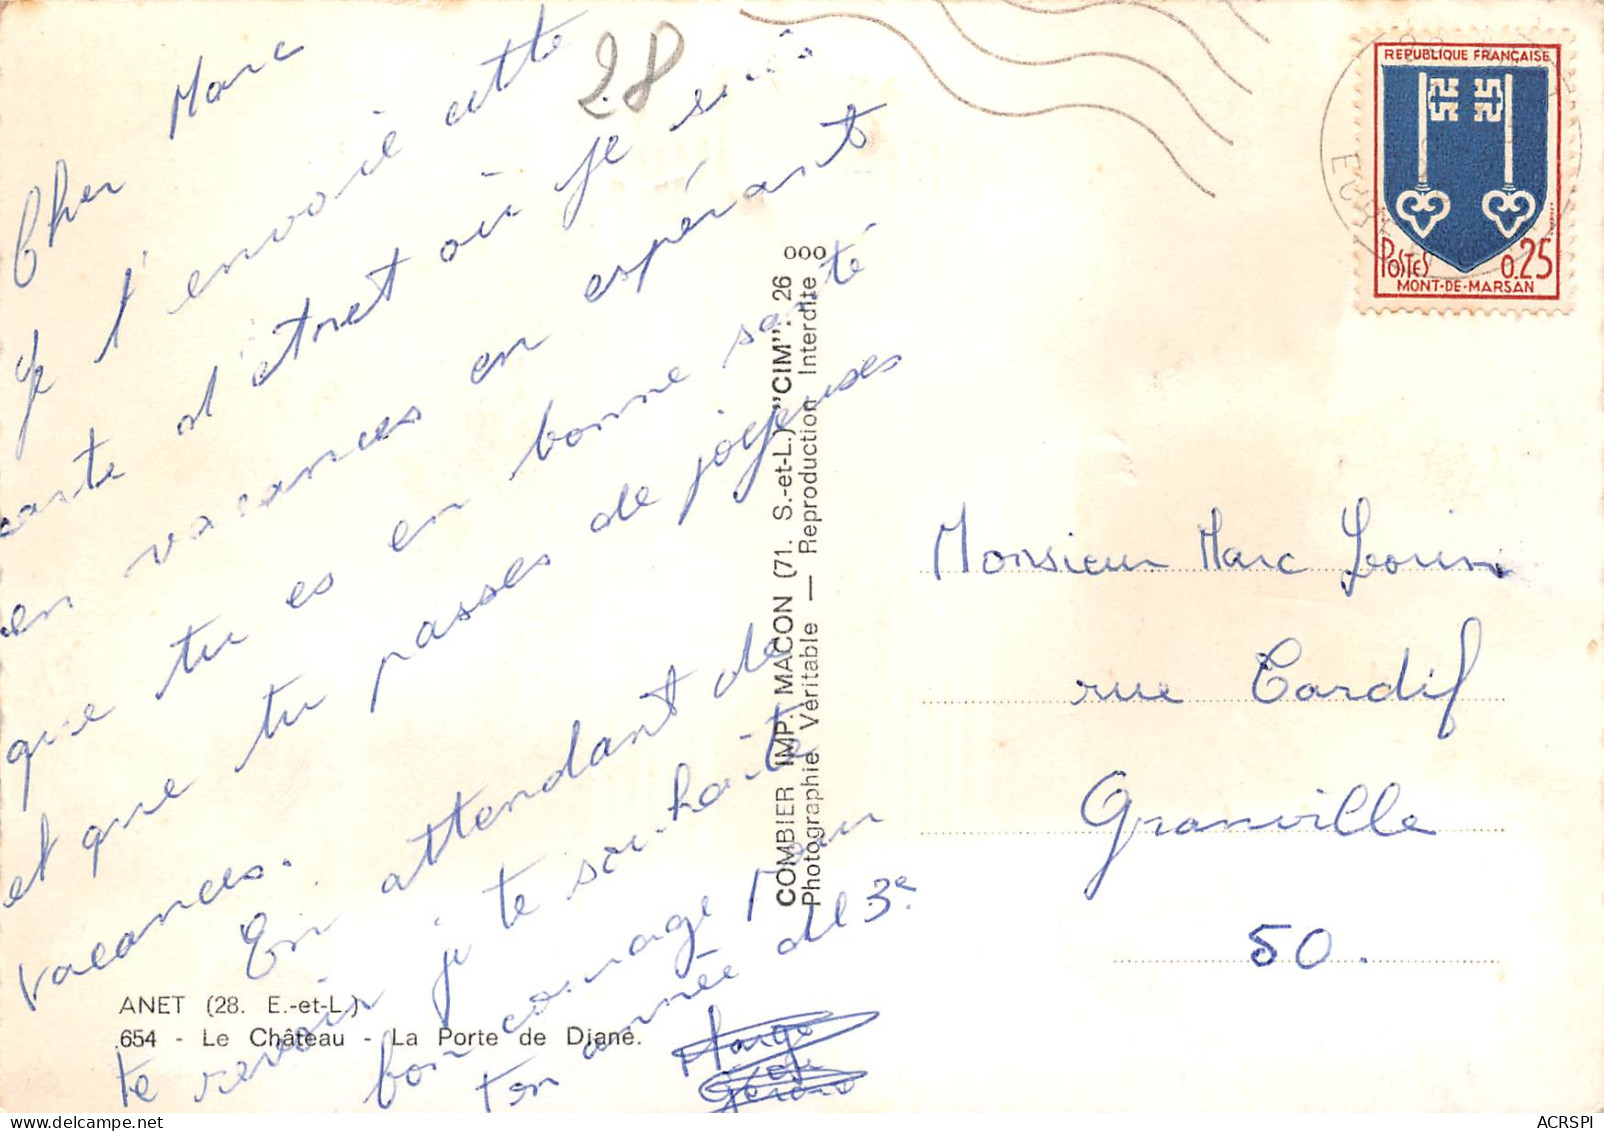 28
Cher Marc
Je t'envoie cette
carte d'Anet où je suis
en vacances en espérant
que tu es en bonne santé
et que tu passes de joyeuses
vacances.
En attendant de
te revoir je te souhaite
bon courage pour
ton année de 3e.
Marge
Gérard
ANET (28. E.-et-L.)
654 - Le Château - La Porte de Diane.
COMBIER IMP. MACON (71. S.-et-L.) "CIM". 26
Photographie Véritable — Reproduction Interdite
ooo
REPUBLIQUE FRANÇAISE
POSTES 0.25
MONT-DE-MARSAN
Monsieur Marc Lorin
rue Cardif
Granville
50.
ACRSPI